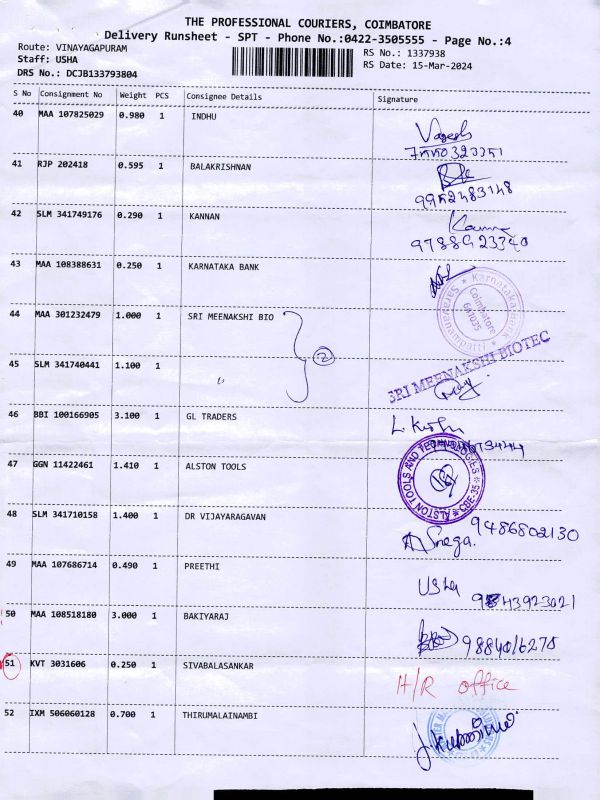 THE PROFESSIONAL COURIERS, COIMBATORE
Delivery Runsheet - SPT - Phone No.:0422-3505555 - Page No.:4
Route: VINAYAGAPURAM
RS No.: 1337938
Staff: USHA
RS Date: 15-Mar-2024
DRS No.: DCJB133793804
S No Consignment No Weight PCS Consignee Details Signature
40 MAA 107825029 0.980 1 INDHU
41 RJP 202418 0.595 1 BALAKRISHNAN
9952483148
42 SLM 341749176 0.290 1 KANNAN
9788923340
43 MAA 108388631 0.250 1 KARNATAKA BANK
Karnataka Bank
Coimbatore
641035
44 MAA 301232479 1.000 1 SRI MEENAKSHI BIO
2
SRI MEENAKSHI BIOTEC
45 SLM 341740441 1.100 1 "
46 BBI 100166905 3.100 1 GL TRADERS
47 GGN 11422461 1.410 1 ALSTON TOOLS
ALSTON TOOLS AND TECHNOLOGIES CBE-35
48 SLM 341710158 1.400 1 DR VIJAYARAGAVAN
9486802130
Snega.
49 MAA 107686714 0.490 1 PREETHI
Usha
50 MAA 108518180 3.000 1 BAKIYARAJ
9884016270
51 KVT 3031606 0.250 1 SIVABALASANKAR
H/R office
52 IXM 506060128 0.700 1 THIRUMALAINAMBI